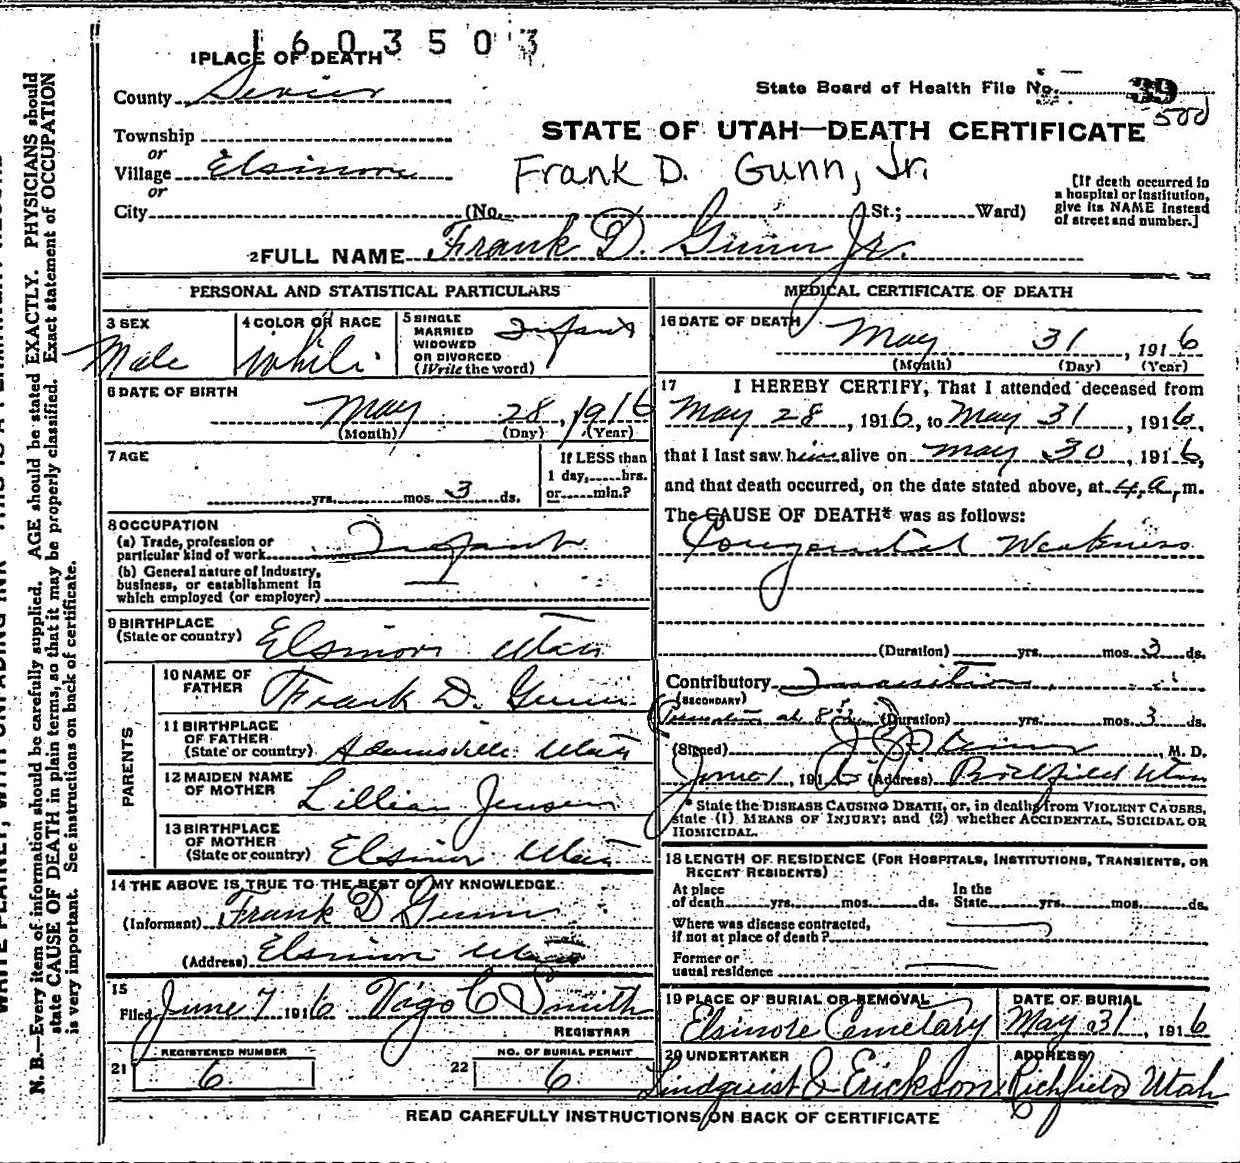 1603503
1 PLACE OF DEATH
County Sevier
State Board of Health File No. 39
500
Township
or
Village Elsinore
or
City (No. St.; Ward)
STATE OF UTAH—DEATH CERTIFICATE
Frank D. Gunn, Jr.
[If death occurred in
a hospital or institution,
give its NAME instead
of street and number.]
2 FULL NAME Frank D. Gunn Jr.
PERSONAL AND STATISTICAL PARTICULARS
3 SEX
Male
4 COLOR OR RACE
White
5 SINGLE
MARRIED
WIDOWED
OR DIVORCED
(Write the word)
Infant
6 DATE OF BIRTH
May 28, 1916
(Month) (Day) (Year)
7 AGE
yrs. mos. 3 ds.
If LESS than
1 day, hrs.
or min.?
8 OCCUPATION
(a) Trade, profession or
particular kind of work Infant
(b) General nature of Industry,
business, or establishment in
which employed (or employer)
9 BIRTHPLACE
(State or country) Elsinore Utah
PARENTS
10 NAME OF
FATHER Frank D. Gunn
11 BIRTHPLACE
OF FATHER
(State or country) Adamsville Utah
12 MAIDEN NAME
OF MOTHER Lillian Jensen
13 BIRTHPLACE
OF MOTHER
(State or country) Elsinor Utah
14 THE ABOVE IS TRUE TO THE BEST OF MY KNOWLEDGE.
(Informant) Frank D Gunn
(Address) Elsinore Utah
15
Filed June 7 1916 Vigo C Smith
REGISTRAR
21 REGISTERED NUMBER
6
22 NO. OF BURIAL PERMIT
6
MEDICAL CERTIFICATE OF DEATH
16 DATE OF DEATH
May 31, 1916
(Month) (Day) (Year)
17 I HEREBY CERTIFY, That I attended deceased from
May 28, 1916, to May 31, 1916,
that I last saw him alive on May 30, 1916,
and that death occurred, on the date stated above, at 4 a. m.
The CAUSE OF DEATH* was as follows:
Congenital Weakness
(Duration) yrs. mos. 3 ds.
Contributory Inanition
(SECONDARY)
(Duration) yrs. mos. 3 ds.
(Signed) M. D.
June 1, 1916 (Address) Richfield Utah
*State the DISEASE CAUSING DEATH, or, in deaths from VIOLENT CAUSES,
state (1) MEANS OF INJURY; and (2) whether ACCIDENTAL, SUICIDAL OR
HOMICIDAL.
18 LENGTH OF RESIDENCE (FOR HOSPITALS, INSTITUTIONS, TRANSIENTS, OR
RECENT RESIDENTS)
At place of death yrs. mos. ds. In the State yrs. mos. ds.
Where was disease contracted,
if not at place of death?
Former or
usual residence
19 PLACE OF BURIAL OR REMOVAL
Elsinore Cemetary
DATE OF BURIAL
May 31, 1916
20 UNDERTAKER
Lindquist & Erickson
ADDRESS
Richfield Utah
READ CAREFULLY INSTRUCTIONS ON BACK OF CERTIFICATE
N. B.—Every item of information should be carefully supplied. AGE should be stated EXACTLY. PHYSICIANS should
state CAUSE OF DEATH in plain terms, so that it may be properly classified. Exact statement of OCCUPATION
is very important. See instructions on back of certificate.